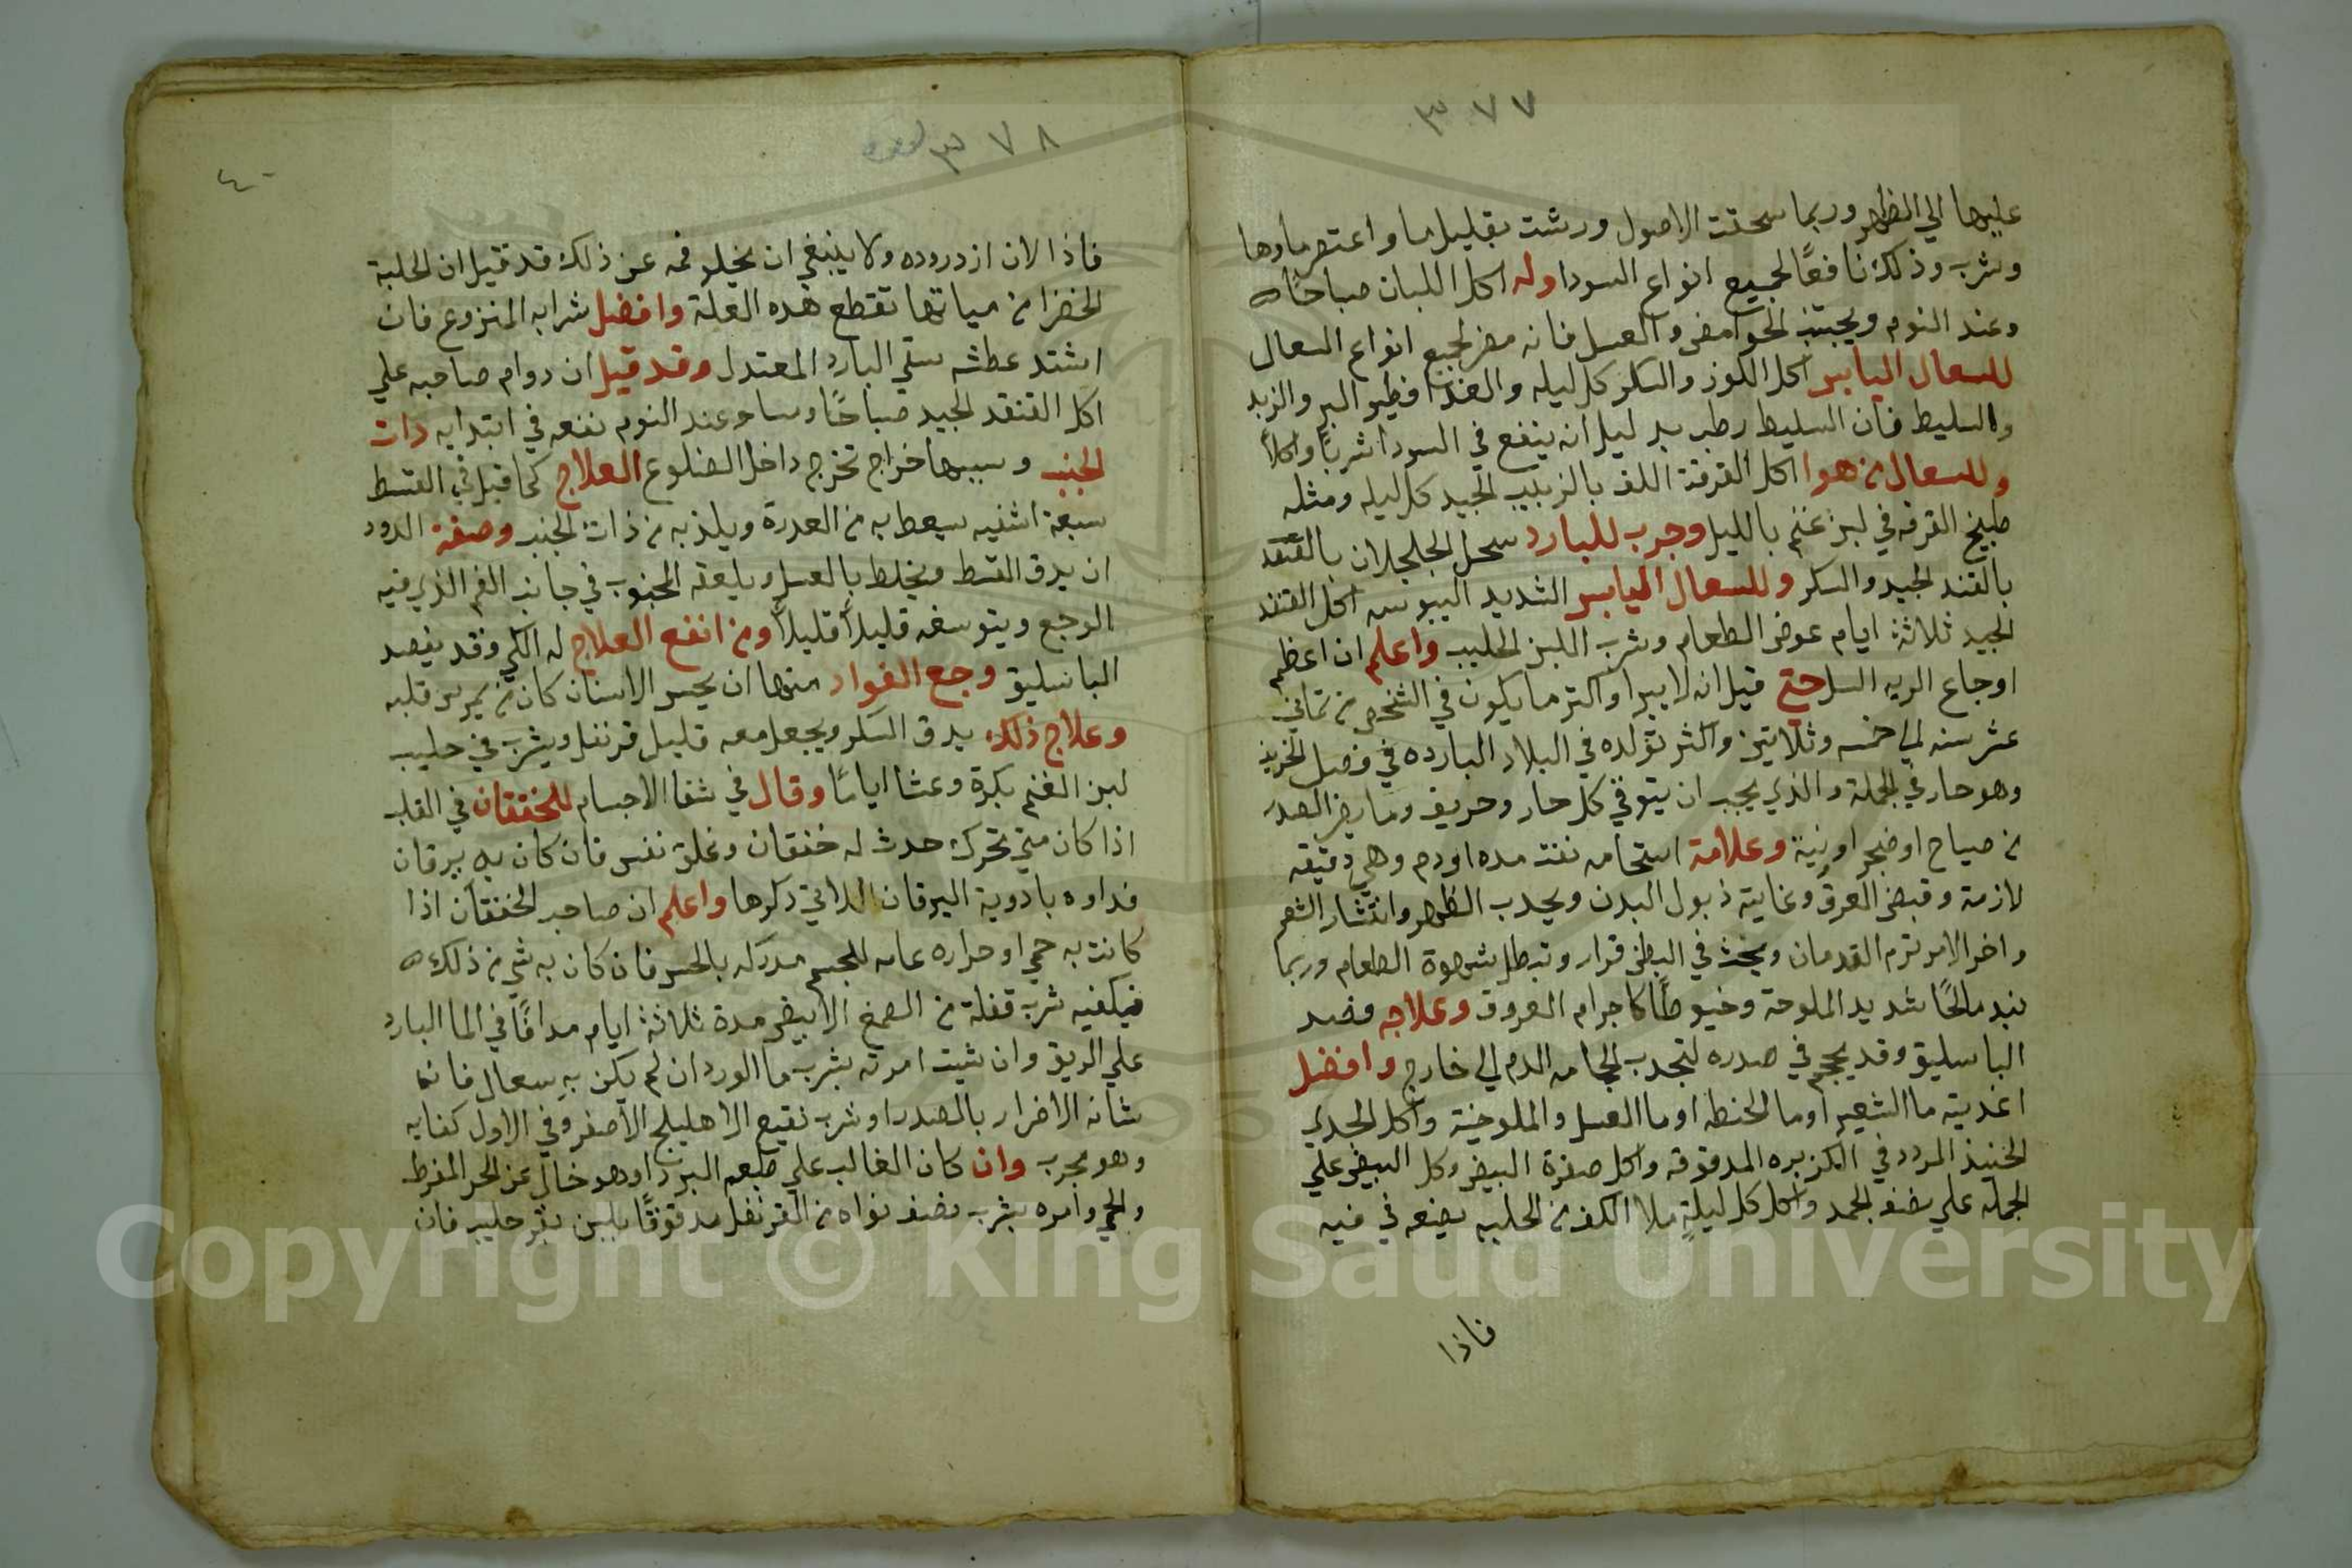 ٣٧٧
عليها الي الظهر وربما سحقت الاصول ورشت بقليل ما واعتصر ماوها
وشرب وذلك نافعًا لجميع انواع السودا وله اكل اللبان صباحًا
وعند النوم ويجتنب الحوامض والعسل فانه مضر لجميع انواع السعال
للسعال اليابس اكل اللوز والسكر كل ليله والغذا فطير البر والزبد
والسليط فان السليط رطب بدليل انه ينفع في السودا شربًا واكلاً
وللسعال من هوا اكل القرفة اللف بالزبيب الجيد كل ليله ومثله
طبيخ القرفه في لبن غنم بالليل وجرب للبارد سحل الجلجلان بالقند
بالقند الجيد والسكر وللسعال اليابس الشديد اليبوسه اكل القند
الجيد ثلاثة ايام عوض الطعام وشرب اللبن الحليب واعلم ان اعظم
اوجاع الريه السل حتي قيل انه لا يبرا واكثر ما يكون في الشخص من ثماني
عشر سنه الي خمسه وثلاثين واكثر تولده في البلاد البارده في فصل الخريف
وهو حار في الجملة والذي يجب ان يتوقي كل حار وحريف وما يضر الصدر
من صياح او ضجر اونية وعلامة استحامه نفث مده اودم وهي دقيقه
لازمة وقبض العرق وغاية ذبول البدن ويحدب الظهر وانتثار الشعر
واخر الامر ترم القدمان ويحدث في البطن قرار وتبطل شهوة الطعام وربما
نبد مالحًا شديد الملوحة وخيوطًا كاجرام العروق وعلاجه فصد
الباسليق وقد يحجم في صدره لتجدب الحجامه الدم الي خارج وافضل
اغديته ما الشعير او ما الحنطه او ما العسل والملوخية واكل الجدي
الحنيذ المردد في الكزبره المدقوقه واكل صفرة البيض وكل البيض علي
الجمله علي نصف الجمد واكل كل ليلةٍ ملا الكف من الحلبه يضعه في فيه
فاذا
٣٧٨
٤٠
فاذا لان ازدروده ولا ينبغي ان يخلو فمه عن ذلك قد قيل ان الحلبة
الخضرا من مياتها تقطع هذه العلة وافضل شرابه المنزوع فان
اشتد عطشه سقي البارد المعتدل وقد قيل ان دوام صاحبه علي
اكل القند الجيد صباحًا ومسا وعند النوم نفعه في ابتدايه ذات
الجنب وسببها خراج تخرج داخل الضلوع العلاج كما قيل في القسط
سبعة اشفيه يسعط به من العدرة ويلذ به من ذات الجنب وصفة الدود
ان يدق القسط ويخلط بالعسل ويلعقه المجنوب في جانب الفم الذي فيه
الوجع ويتوسفه قليلاً قليلاً ومن انفع العلاج له الكي وقد يفصد
الباسليق وجع الفواد منها ان يحس الانسان كان من يمرس قلبه
وعلاج ذلك يدق السكر ويجعل معه قليل قرنفل ويشرب في حليب
لبن الغنم بكرة وعشا ايامًا وقال في شفا الاجسام للخفقان في القلب
اذا كان متي تحرك حدث له خفقان وغلق نفس فان كان به يرقان
فداوه بادوية اليرقان اللاتي ذكرها واعلم ان صاحب الخفقان اذا
كانت به حمي او حراره عامه للجسم مدركه بالحس فان كان به شي من ذلك
فيكفيه شرب قفلة من الصمغ الابيض مدة ثلاثة ايام مدافًا في الما البارد
علي الريق وان شيت امرته بشرب ما الورد ان لم يكن به سعال فانما
شانه الاضرار بالصدر او شرب نقيع الاهليلج الاصفر وفي الاول كفايه
وهو مجرب وان كان الغالب علي طبعه البرد او هو خال عن الحر المفرط
والحمي وامره بشرب نصف نواه من القرنفل مدقوقًا بلبن بقر حليب فان